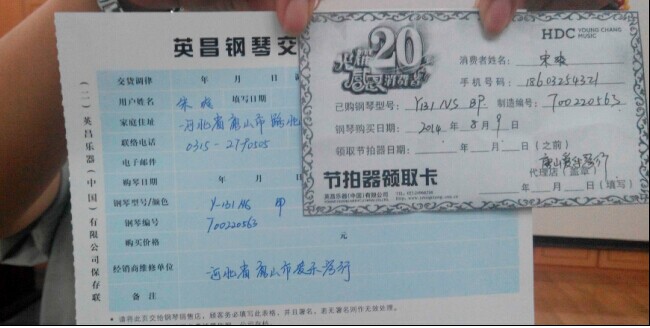 英昌钢琴交
交货调律 年 月 日
用户姓名 填写日期
家庭住址 河北省唐山市路北
联络电话 0315-2790505
电子邮件
购琴日期 年 月 日
钢琴型号/颜色 Y-131NS
钢琴编号 700220563
购买价格 元
经销商维修单位 河北省唐山市爱乐琴行
备注
请将此页交给钢琴销售店，顾客务必填写此表格，并且署名，表无署名则作无效处理。
(二)英昌乐器(中国)有限公司保存联
20
HDC YOUNG CHANG
MUSIC
消费者姓名：
手机号码：18603254321
已购钢琴型号：Y131 NS BP 制造编号：700220563
钢琴购买日期：2014年8月9日
领取节拍器日期：年 月 日(之前)
代理店(盖章)
年 月 日(填写)
节拍器领取卡
英昌乐器(中国)有限公司